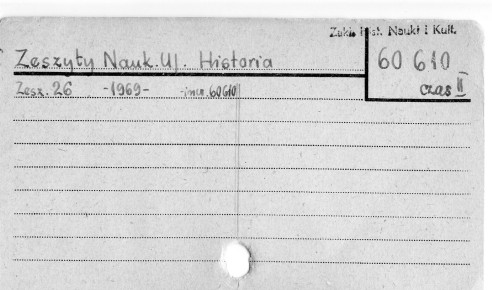 Zakł. Hist. Nauki i Kult.
Zeszyty Nauk. UJ. Historia
60 610
czas II
Zesz. 26 -1969- -inw. 60610